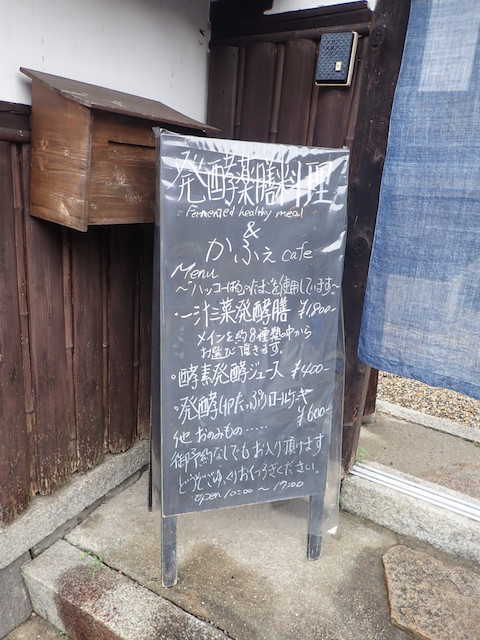 発酵薬膳料理
Fermented healthy meal
&
かふぇ cafe
Menu
・一汁三菜発酵膳 ¥1800-
メインを約8種類の中から
お選び頂きます。
・酵素発酵ジュース ¥400-
・発酵 たっぷりロールケーキ
¥600-
他 おのみもの.....
御予約なしでもお入り頂けます
どうぞごゆっくりおくつろぎください。
open 10:00 〜 17:00